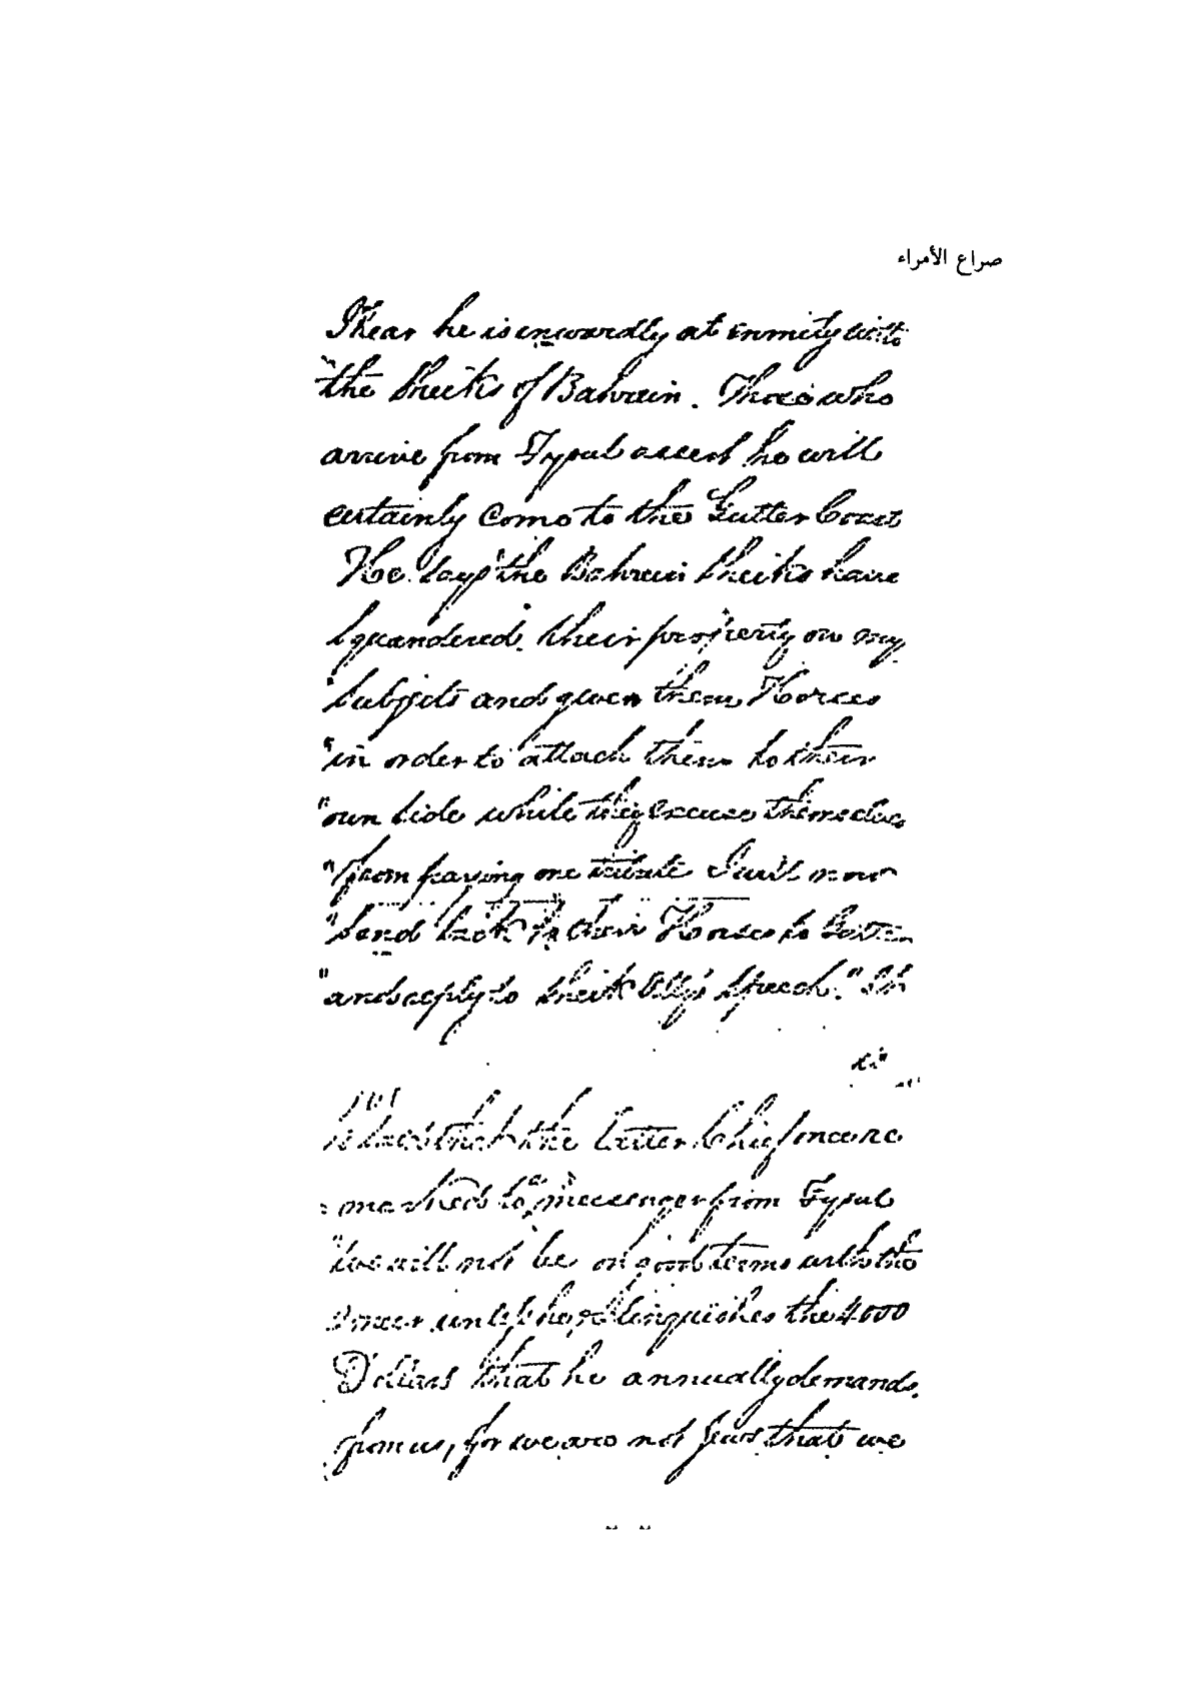 صراع الأمراء
I hear he is inwardly at enmity with
the Sheiks of Bahrein. Those who
arrive from Fysul assert he will
certainly come to the Gutter Coast
He says "the Bahrein Sheiks have
squandered their property on my
"subjects and given them Horses
"in order to attach them to their
"own side while they excuse themselves
"from paying me tribute I will now
"send back their Horses to
"and reply to Sheik Ally's Speech."
that the latter Chief
remarked to messenger from Fysul
"We will not be on good terms with the
Ameer until he relinquishes the 4000
Dollars that he annually demands
from us, for we are not Jews that we